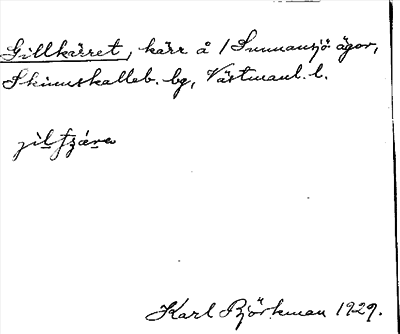 Gillkärret, kärr å Sunnansjö ägor,
Skinnskatteb. bg, Västmanl. l.
Karl Björkman 1929.